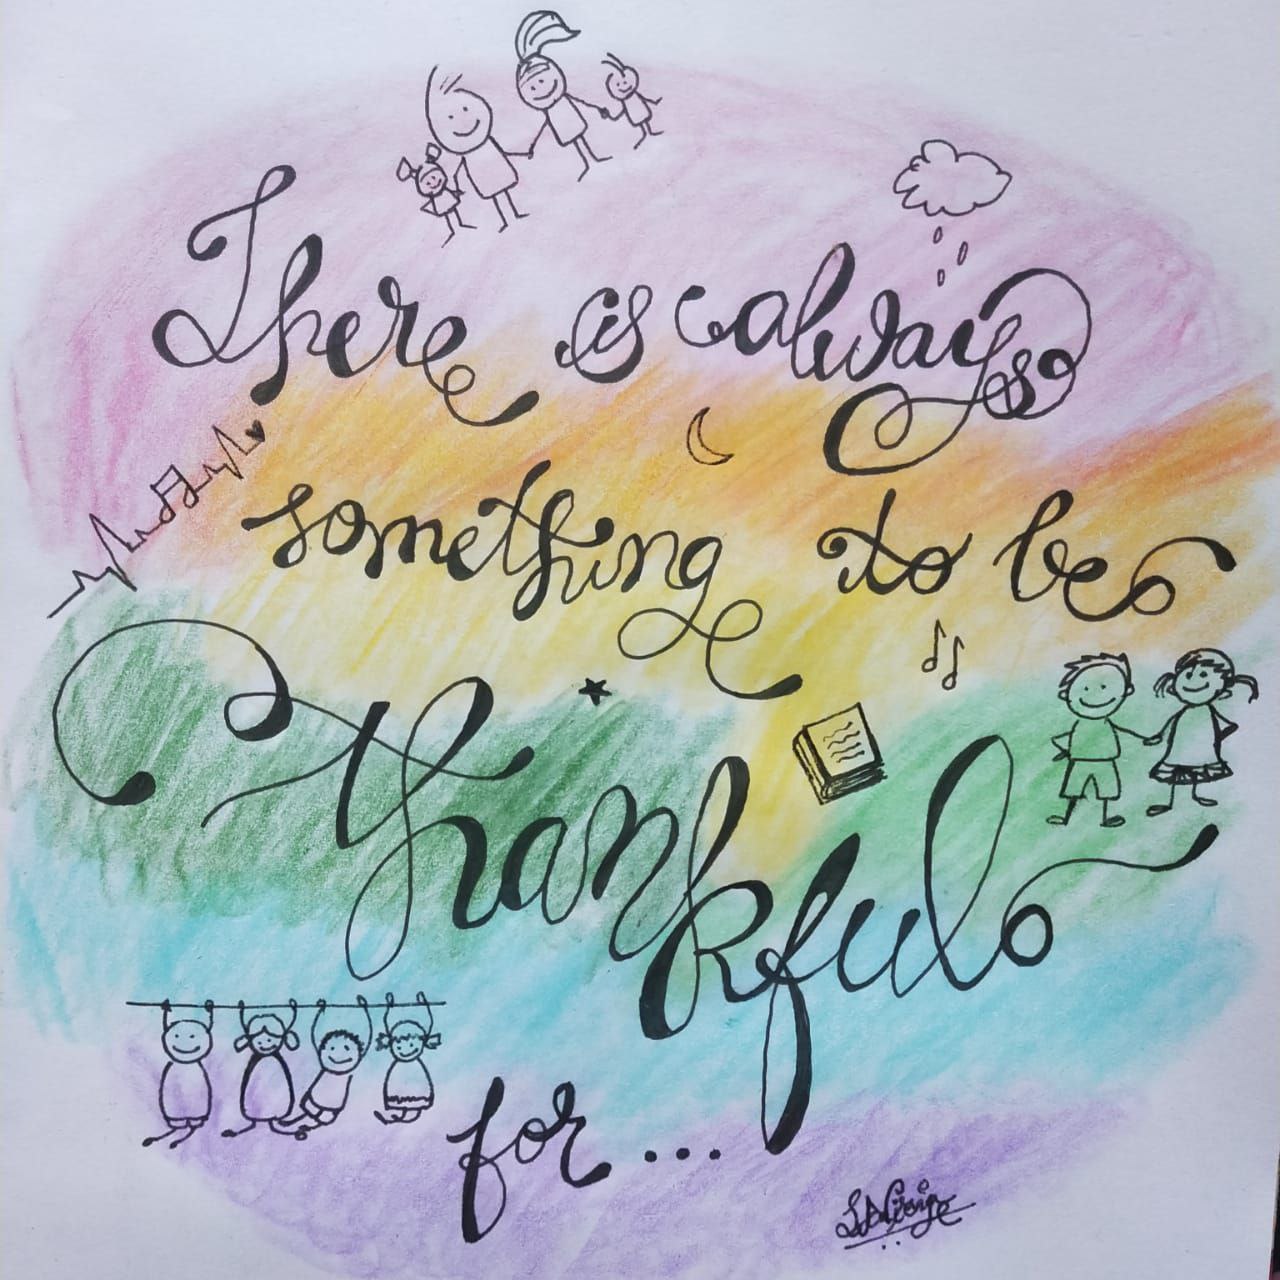 There is always
something to be
thankful
for...